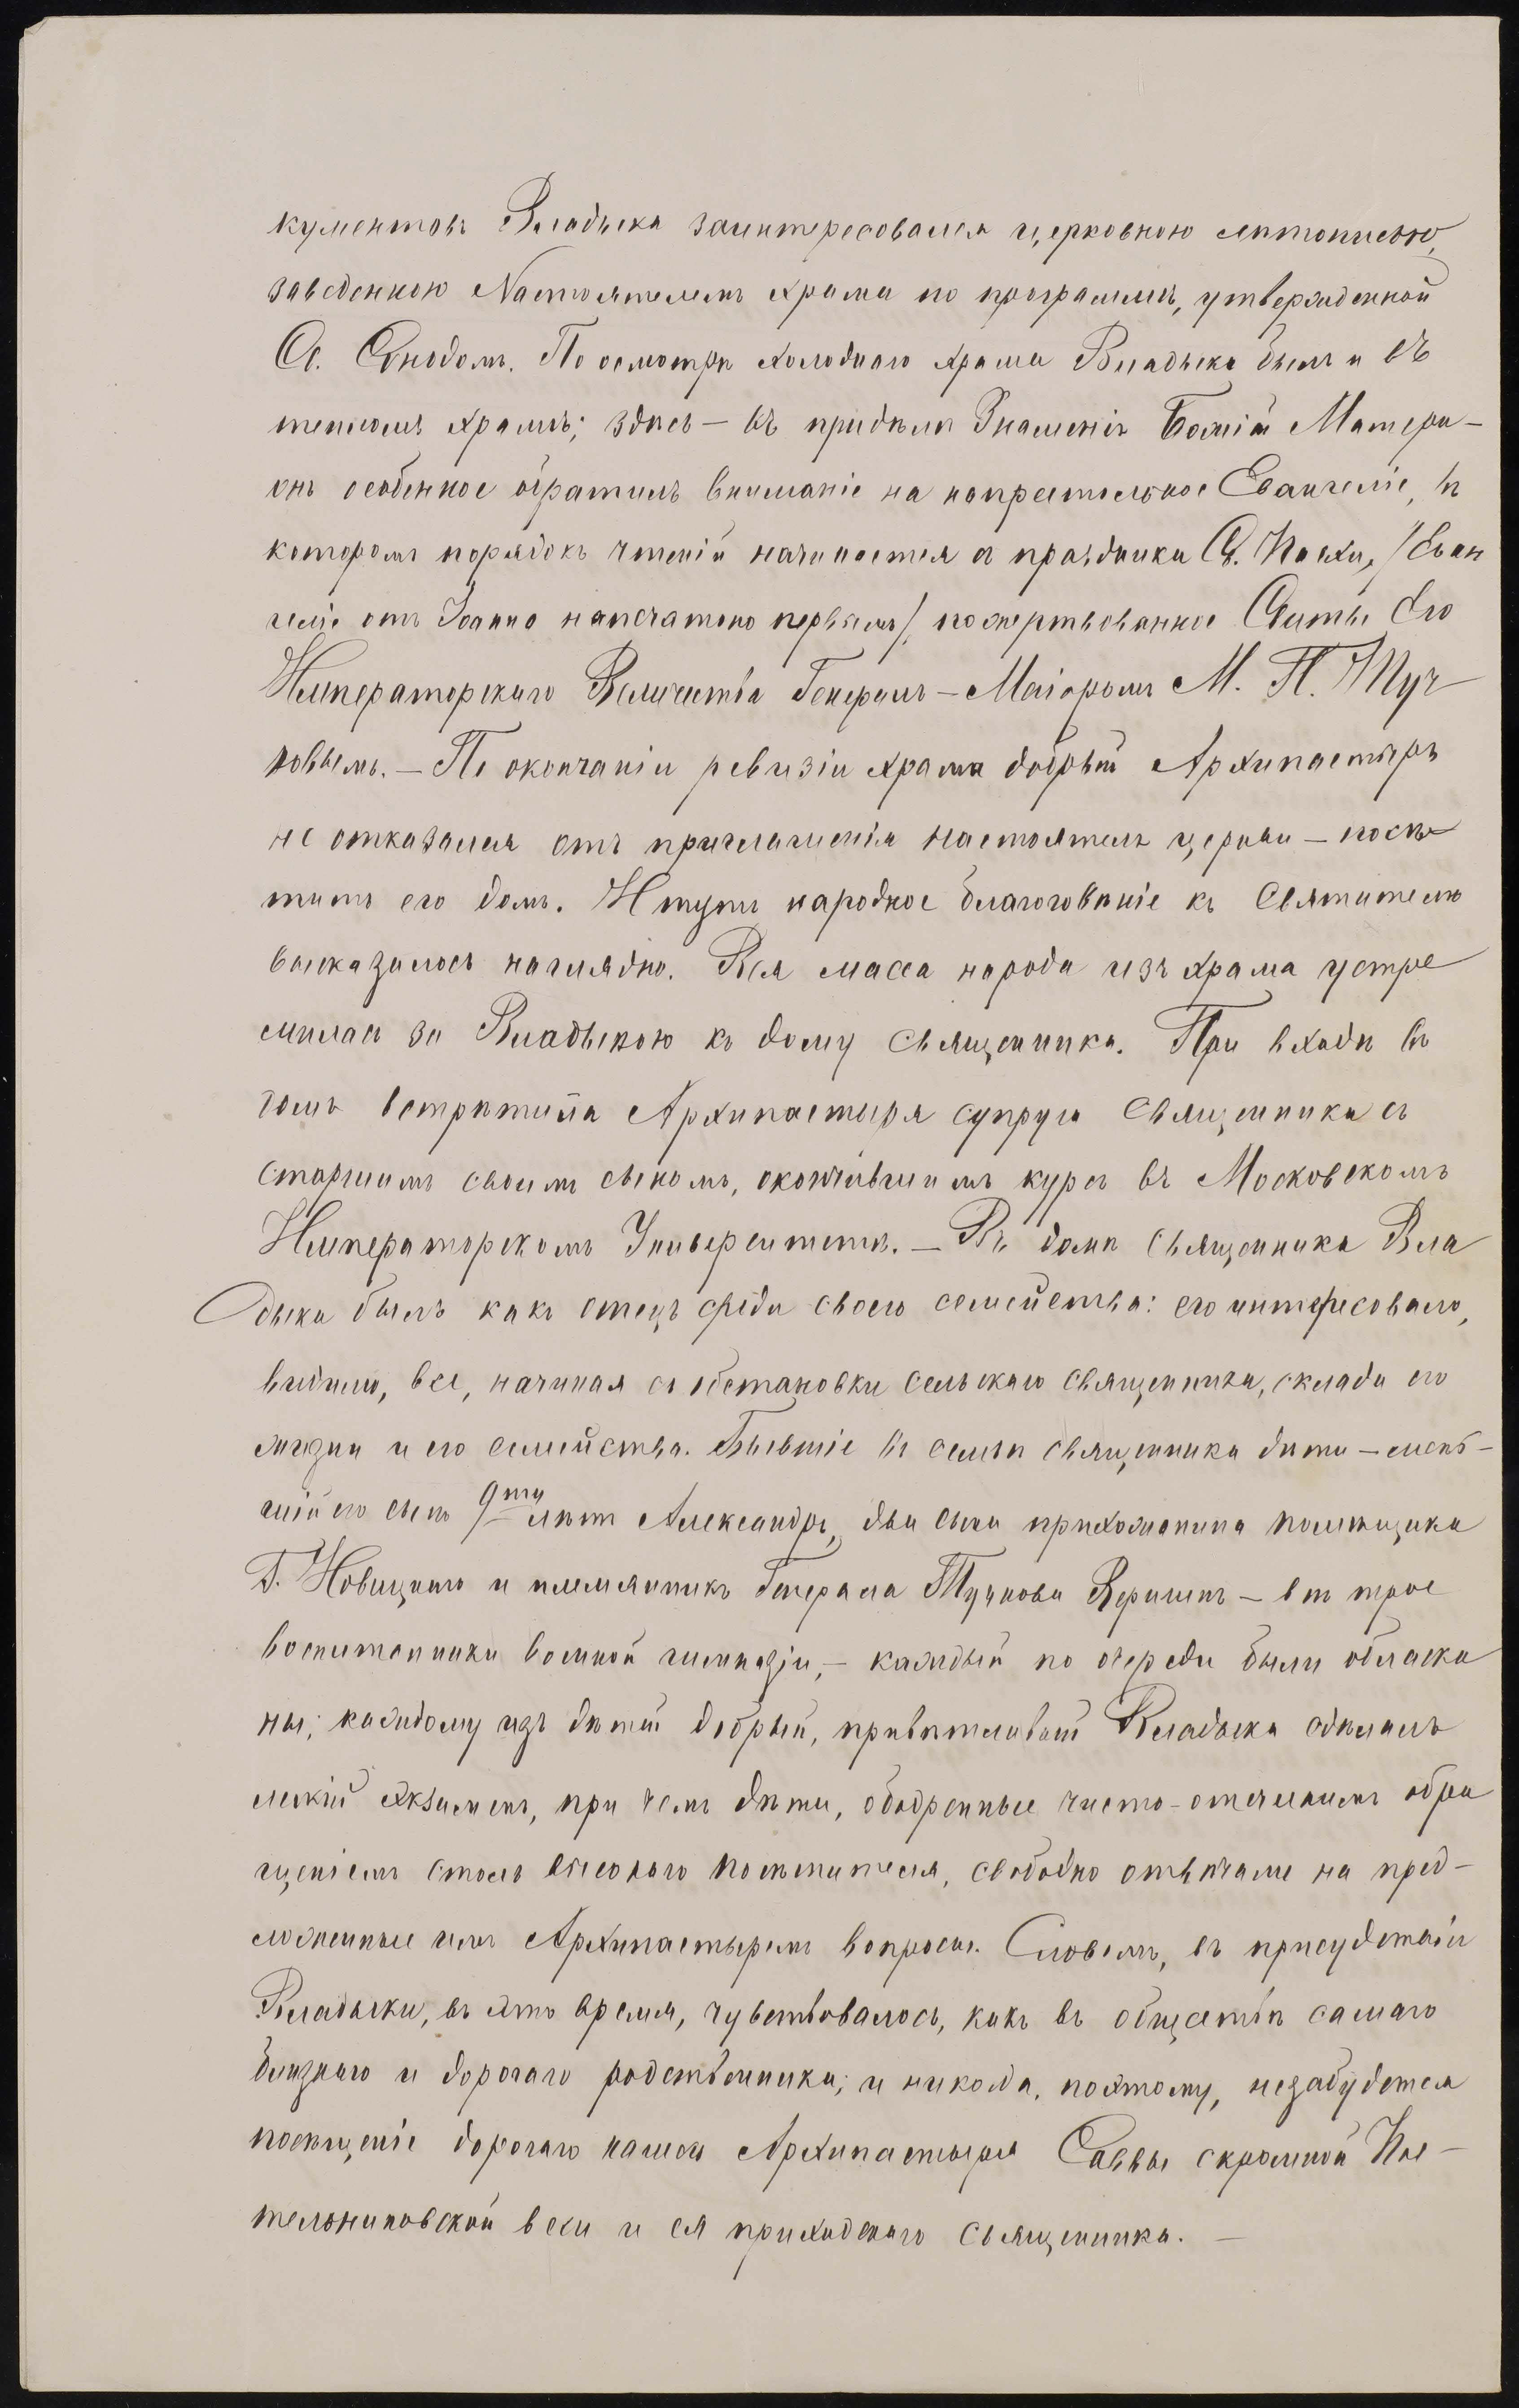 кументовъ Владыка заинтересовался церковною лѣтописью,
заведенною Настоятелемъ храма по программѣ, утвержденной
Св. Сѵнодомъ. По осмотрѣ холоднаго храма Владыка былъ и въ
тепломъ храмѣ; здѣсь — въ придѣлѣ Знаменія Божіей Матери —
онъ особенное обратилъ вниманіе на напрестольное Евангеліе, въ
которомъ порядокъ чтеній начинается съ праздника Св. Пасхи, /Еван
геліе отъ Іоанна напечатано первымъ/, пожертвованное Свиты Его
Императорскаго Величества Генералъ-Маіоромъ М. П. Туч
ковымъ. — По окончаніи ревизіи храма добрый Архипастырь
не отказался отъ приглашенія настоятеля церкви — посѣ
тить его домъ. И тутъ народное благоговѣніе къ Святителю
высказалось наглядно. Вся масса народа изъ храма устре
милась за Владыкою къ дому священника. При входѣ въ
домъ встрѣтила Архипастыря супруга священника съ
старшимъ своимъ сыномъ, окончившимъ курсъ въ Московскомъ
Императорскомъ Университетѣ. — Въ домѣ священника Вла
дыка былъ какъ отецъ среди своего семейства: его интересовало,
видимо, все, начиная съ обстановки сельскаго священника, склада его
жизни и его семейства. Бывшіе въ семьѣ священника дѣти — мень-
шій его сынъ 9ти лѣтъ Александръ, два сына прихожанина помѣщика
Г. Новицкаго и племянникъ Генерала Тучкова — всѣ трое
воспитанники военной гимназіи, — каждый по очереди были обласка
ны; каждому изъ дѣтей добрый, привѣтливый Владыка сдѣлалъ
легкій экзаменъ, при чемъ дѣти, ободренные чисто-отеческимъ обра
щеніемъ столь высокаго посѣтителя, свободно отвѣчали на пред-
ложенные имъ Архипастыремъ вопросы. Словомъ, въ присудствіи
Владыки, въ это время, чувствовалось, какъ въ обществѣ самаго
близкаго и дорогаго родственника; и никогда, поэтому, незабудется
посѣщеніе дорогаго нашего Архипастыря Саввы скромной Кос-
тельниковской веси и ея приходскаго священника. —